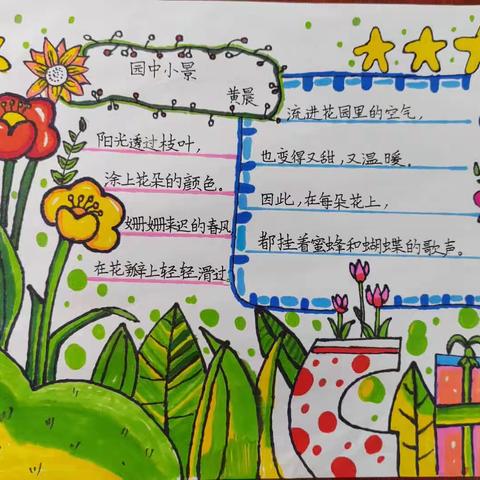 园中小景
黄晨
阳光透过枝叶，
涂上花朵的颜色。
姗姗来迟的春风
在花瓣上轻轻滑过
流进花园里的空气，
也变得又甜，又温暖。
因此，在每朵花上，
都挂着蜜蜂和蝴蝶的歌声。